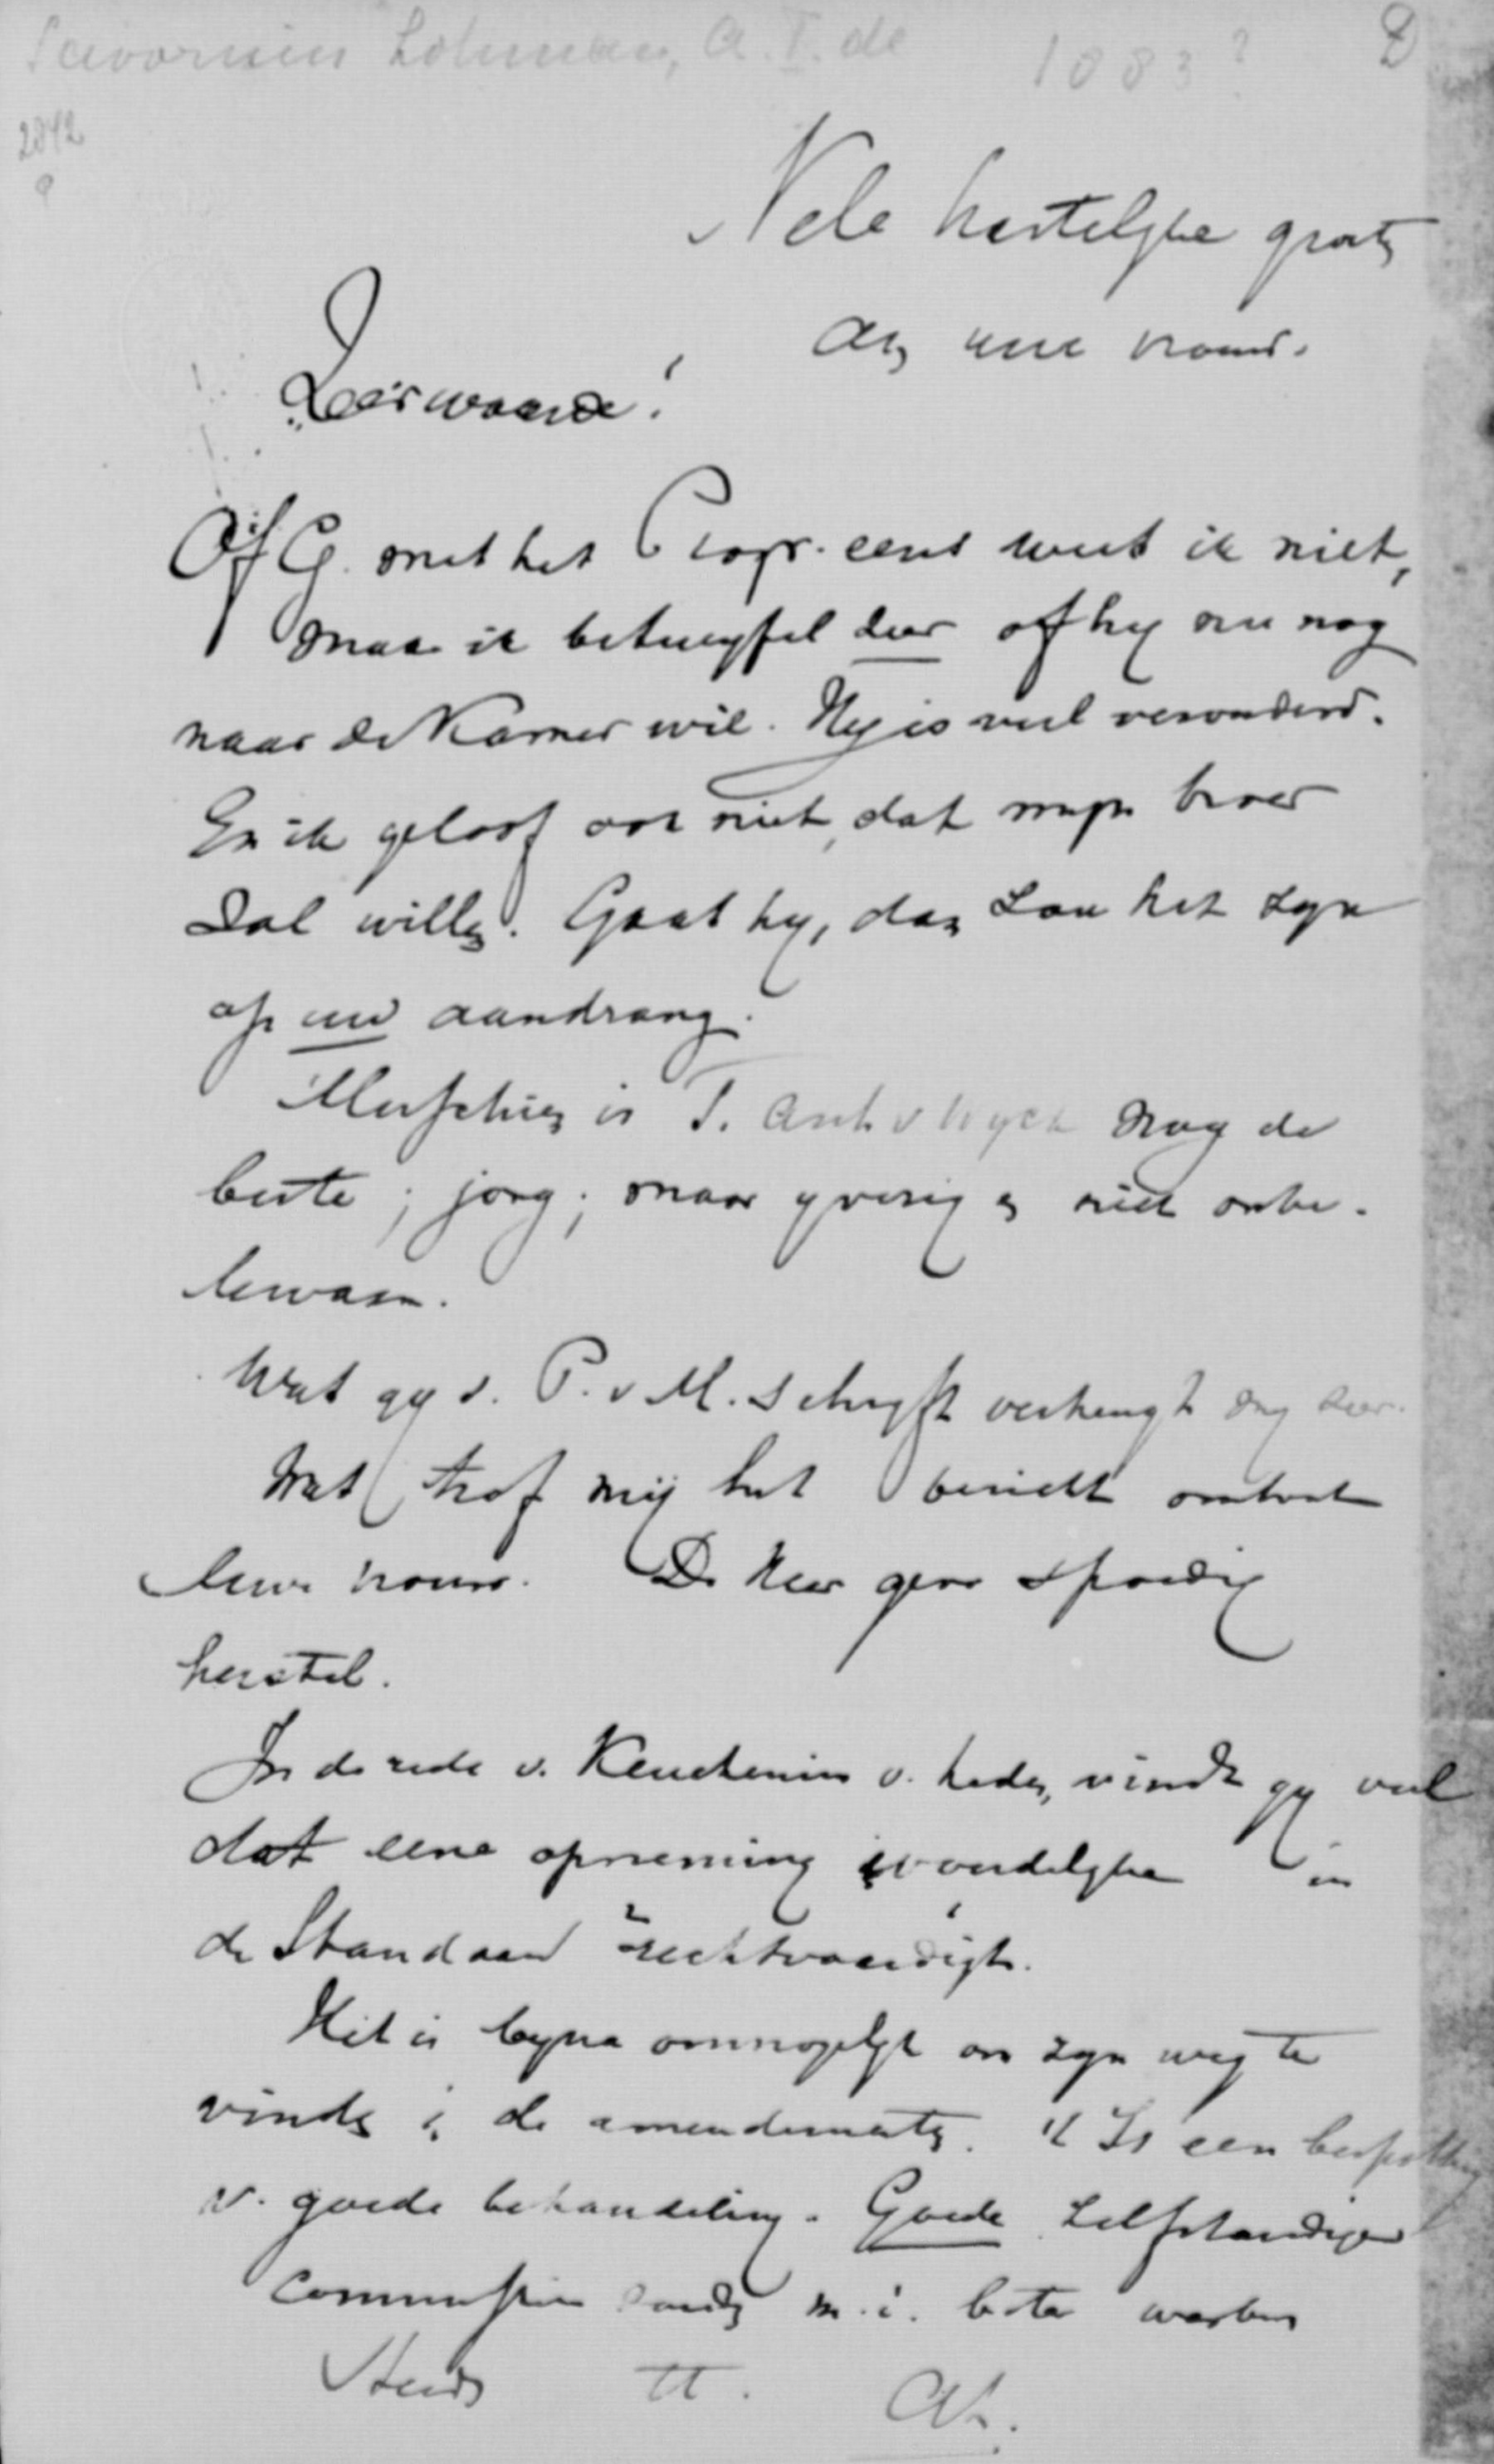 Savornin Lohman, A. F. de 1883?
2842
a
Vele hartelijke groeten
aan uwe vrouw.
Zeerwaarde!
Of G. met het Progr. eens weet ik niet,
maar ik betwyfel zeer of hy nu nog
naar de Kamer wil. Hy is veel veranderd.
En ik geloof ook niet, dat myn broer
Zal willen. Gaat hy, dan zou het zyn
op uw aandrang.
Misschien is T. v Wyck nog de
beste; jong; maar yverig en niet onbe-
kwaam.
Wat gy v. P. v M. schryft verheugt my zeer.
Wat trof mij het bericht omtrent
uwe vrouw. De Heer geve spoedig
herstel.
In de rede v. Keuchenius v. heden, vindt gy veel
dat eene opneming in
de Standaard rechtvaardigt.
Het is byna onmogelyk om zyn weg te
vinden in de amendementen. 't Is een bespotting
v. goede behandeling. Goede zelfstandige
commissien zouden m.i. beter werken
Steeds tt.